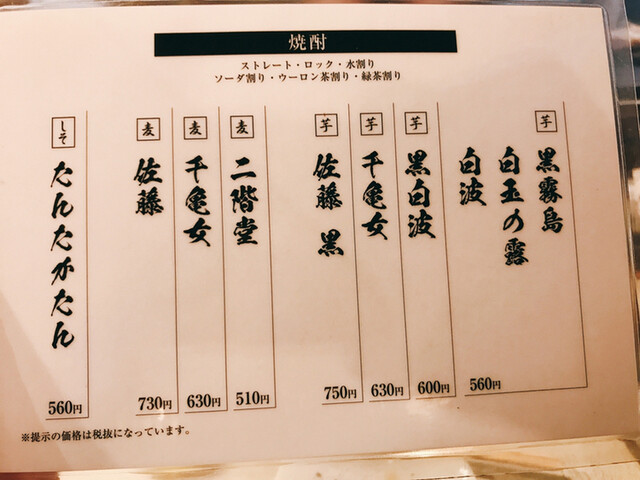 焼酎
ストレート・ロック・水割り
ソーダ割り・ウーロン茶割り・緑茶割り
芋
黒霧島
白玉の露
白波
560円
芋
黒白波
600円
芋
千亀女
630円
芋
佐藤 黒
750円
麦
二階堂
510円
麦
千亀女
630円
麦
佐藤
730円
しそ
たんたかたん
560円
※提示の価格は税抜になっています。